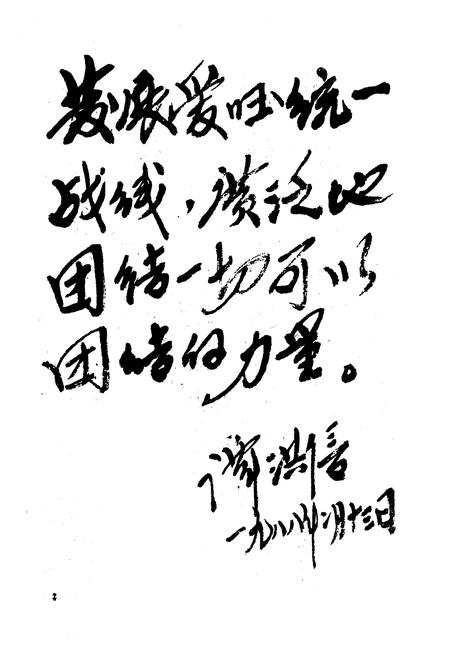 發展爱国统一
战线，广泛地
团结一切可以
团结的力量。
一九八八年二月十三日